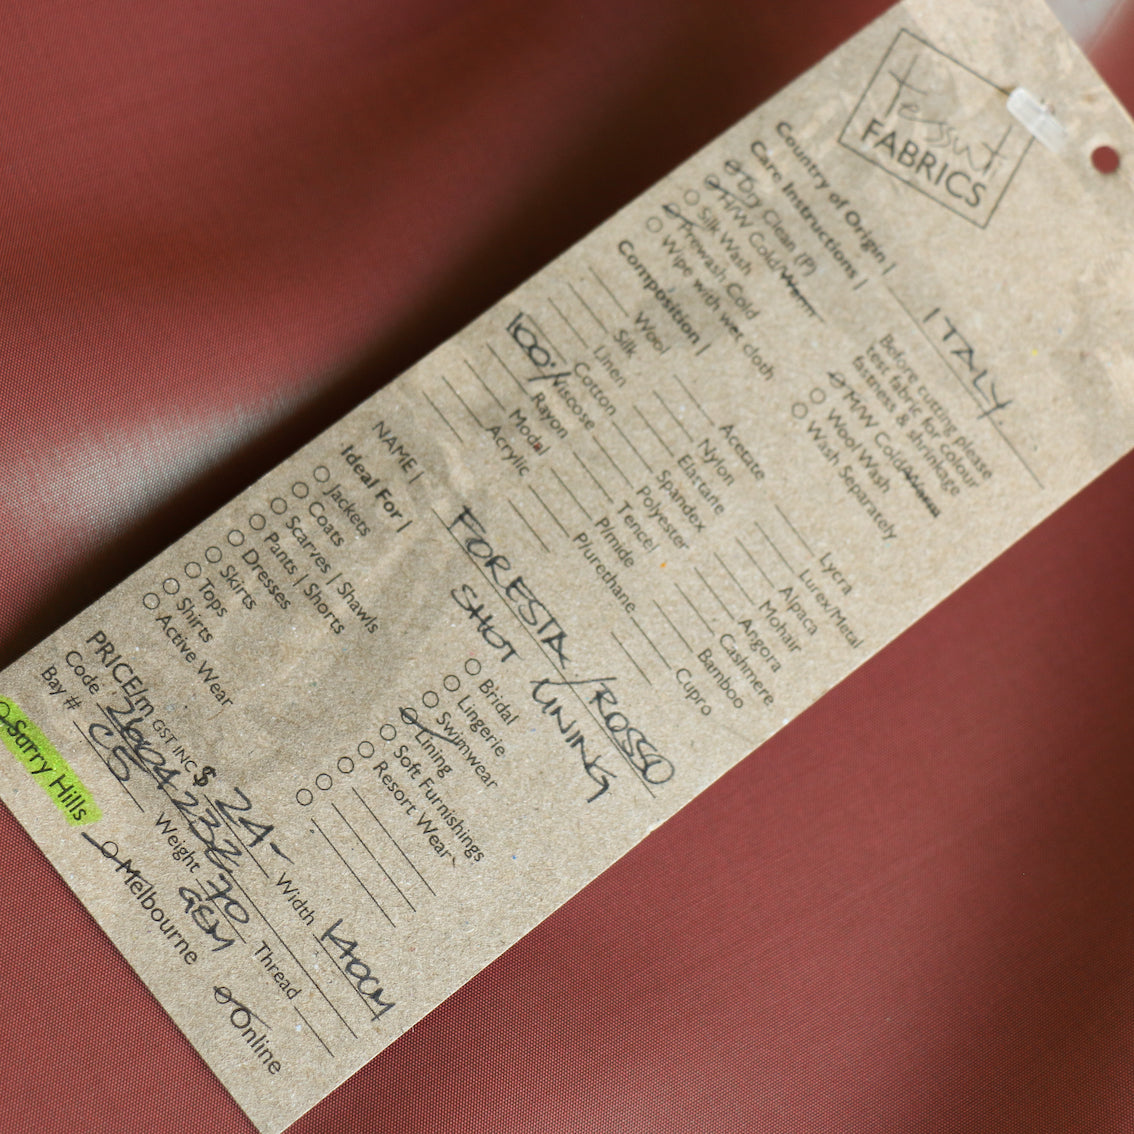 tessuti
FABRICS
Country of Origin | ITALY
Care Instructions |
Dry Clean (P)
H/W Cold/Warm
Silk Wash
Prewash Cold
Wipe with wet cloth
Before cutting please
test fabric for colour
fastness & shrinkage
M/W Cold/Warm
Wool Wash
Wash Separately
Composition |
Wool
Silk
Linen
Cotton
100% Viscose
Rayon
Modal
Acrylic
Acetate
Nylon
Elastane
Spandex
Polyester
Tencel
P/mide
P/urethane
Lycra
Lurex/Metal
Alpaca
Mohair
Angora
Cashmere
Bamboo
Cupro
NAME | FORESTA/ROSSO
SHOT LINING
Ideal For |
Jackets
Coats
Scarves | Shawls
Pants | Shorts
Dresses
Skirts
Tops
Shirts
Active Wear
Bridal
Lingerie
Swimwear
Lining
Soft Furnishings
Resort Wear
PRICE/m GST INC $ 24- Width 140CM
Code 2604232 Thread
Bay # C8 Weight 70 GSM
Surry Hills Melbourne Online